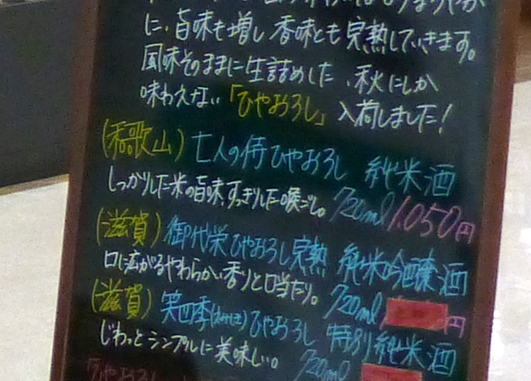 に、旨味も増し香味とも完熟していきます。
風味そのままに生詰めした、秋にしか
味わえない「ひやおろし」入荷しました!
(和歌山)七人の侍ひやおろし 純米酒
しっかりした米の旨味、すっきりした喉ごし。720ml/1,050円
(滋賀)御代栄ひやおろし完熟 純米吟醸酒
口に広がるやわらかい香りと口当たり。720ml/ 円
(滋賀)笑四季(えみしき)ひやおろし 特別純米酒
じわっとシンプルに美味しい。720ml
ひやおろし